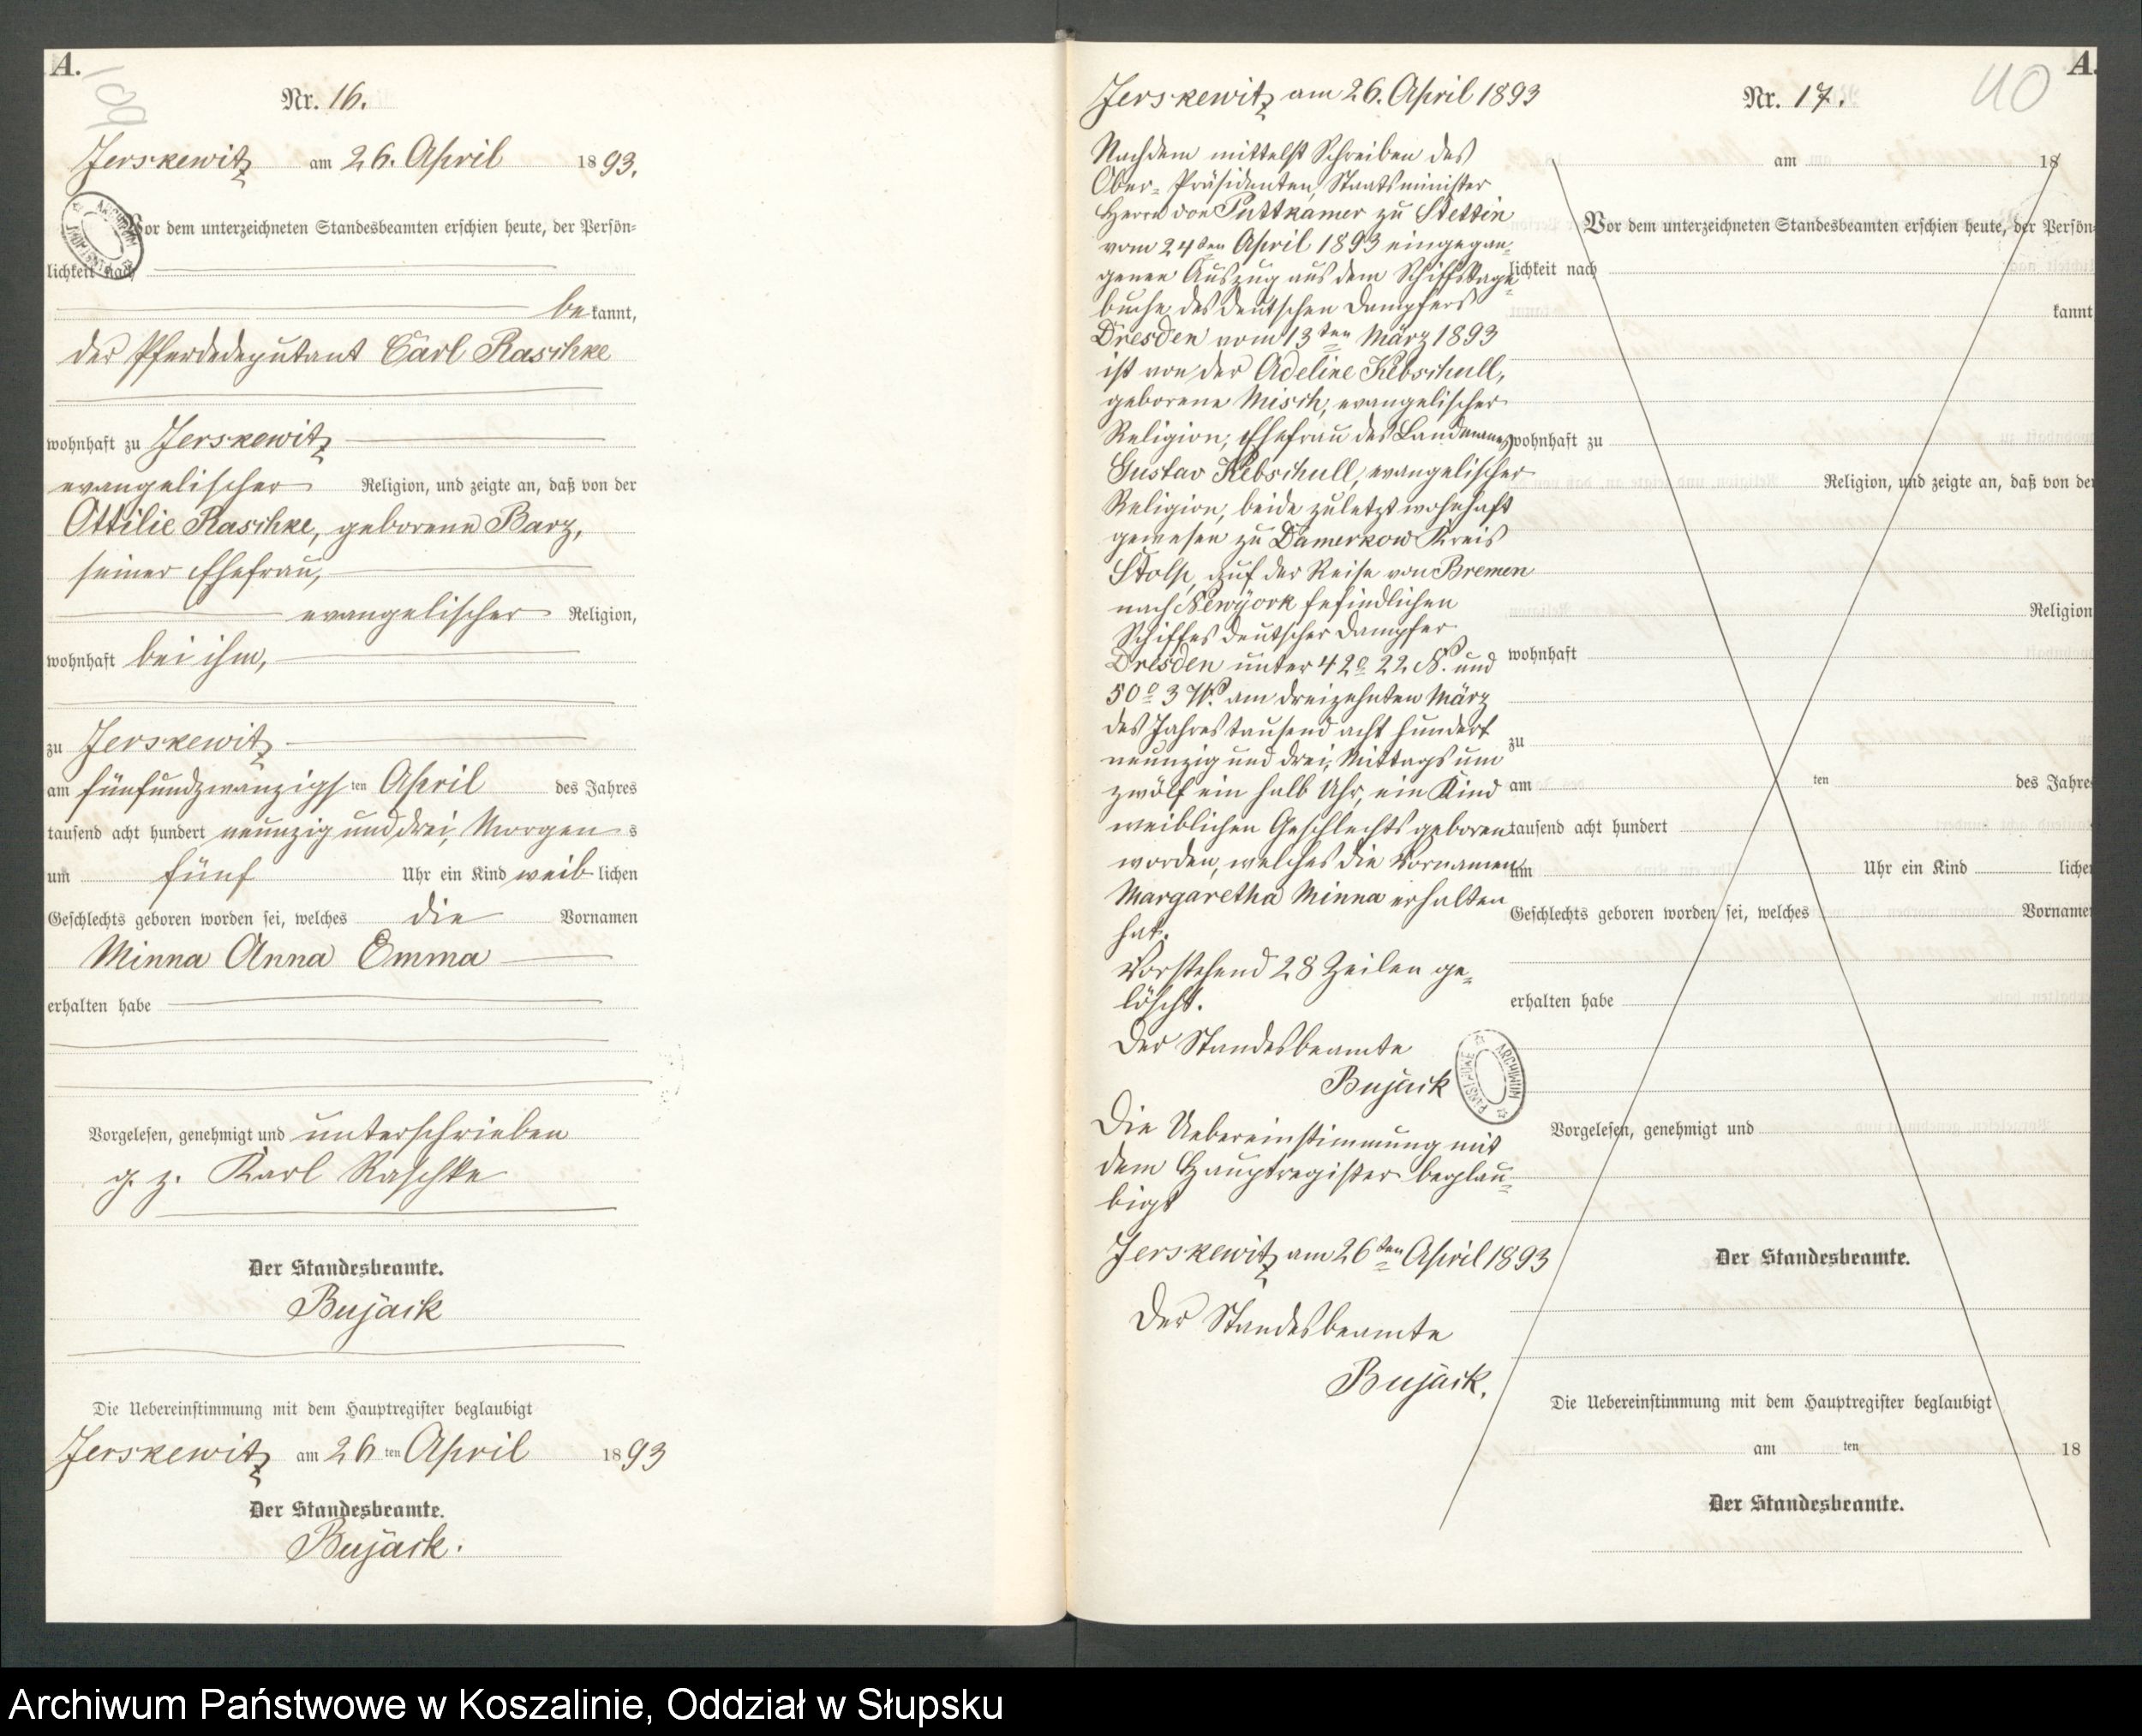 A.
109
Nr. 16.
Jerskewitz am 26. April 1893.
Vor dem unterzeichneten Standesbeamten erschien heute, der Persön=
lichkeit nach
be kannt,
der Pferdedeputant Carl Raschke
wohnhaft zu Jerskewitz
evangelischer Religion, und zeigte an, daß von der
Ottilie Raschke, geborene Barz,
seiner Ehefrau,
evangelischer Religion,
wohnhaft bei ihm,
zu Jerskewitz
am fünfundzwanzigsten April des Jahres
tausend acht hundert neunzig und drei, Morgens
um fünf Uhr ein Kind weiblichen
Geschlechts geboren worden sei, welches die Vornamen
Minna Anna Emma
erhalten habe
Vorgelesen, genehmigt und unterschrieben
g. z. Karl Raschke
Der Standesbeamte.
Bujack
Die Uebereinstimmung mit dem Hauptregister beglaubigt
Jerskewitz am 26ten April 1893
Der Standesbeamte.
Bujack.
Jerskewitz am 26. April 1893
Nachdem mittelst Schreiben des
Ober= Präsidenten, Staatsminister
Herrn von Puttkamer zu Stettin
vom 24ten April 1893 eingegan=
genen Auszug aus dem Schiffstage=
buche des deutschen Dampfers
Dresden vom 13ten März 1893
ist von der Adeline Kebschull,
geborene Misch, evangelischer
Religion, Ehefrau des Landmannes
Gustav Kebschull, evangelischer
Religion, beide zuletzt wohnhaft
gewesen zu Damerkow Kreis
Stolp, auf der Reise von Bremen
nach Newyork befindlichen
Schiffes deutscher Dampfer
Dresden unter 42° 22 N. und
50° 3 W. am dreizehnten März
des Jahres tausend acht hundert
neunzig und drei, Mittags um
zwölf ein halb Uhr, ein Kind
weiblichen Geschlechts geboren
worden, welches die Vornamen
Margaretha Minna erhalten
hat.
Vorstehend 28 Zeilen ge=
löscht.
Der Standesbeamte
Bujack
Die Uebereinstimmung mit
dem Hauptregister beglau=
bigt
Jerskewitz am 26ten April 1893
Der Standesbeamte
Bujack.
A.
40
Nr. 17.
am 18
Vor dem unterzeichneten Standesbeamten erschien heute, der Persön
lichkeit nach
kannt
wohnhaft zu
Religion, und zeigte an, daß von der
Religion
wohnhaft
zu
am ten des Jahre
tausend acht hundert
um Uhr ein Kind liche
Geschlechts geboren worden sei, welches Vorname
erhalten habe
ARCHIWUM PAŃSTWOWE
Vorgelesen, genehmigt und
Der Standesbeamte.
Die Uebereinstimmung mit dem Hauptregister beglaubigt
am ten 18
Der Standesbeamte.
Archiwum Państwowe w Koszalinie, Oddział w Słupsku